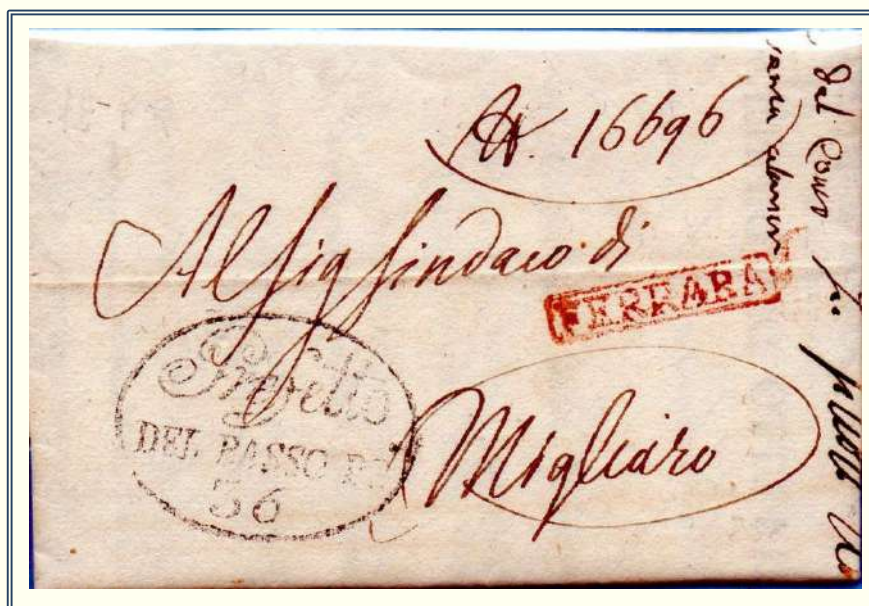 N. 16696
Al Sig Sindaco di
FERRARA
Prefetto
DEL BASSO PO
36
Migliaro
dal